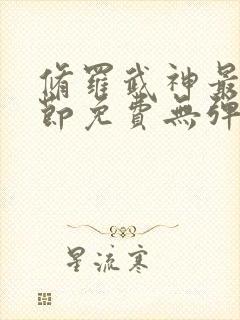 脩羅武神最
節免費無彈
星流寒